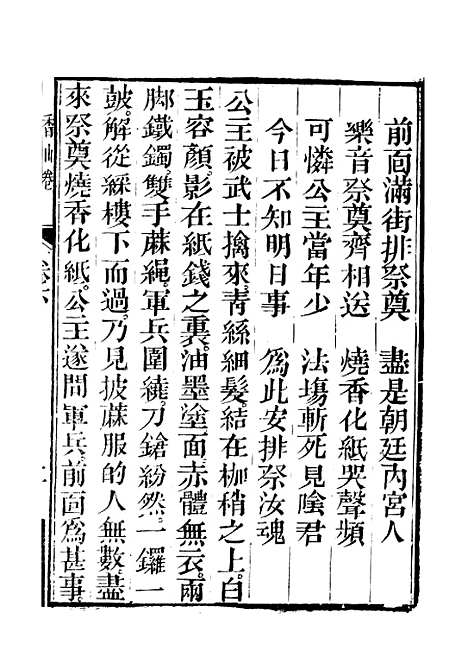 前面滿街排祭奠　盡是朝廷內宮人
樂音祭奠齊相送　燒香化紙哭聲頻
可憐公主當年少　法場斬死見陰君
今日不知明日事　為此安排祭汝魂
公主被武士擒來。青絲細髮。結在枷稍之上。白
玉容顏。影在紙錢之裏。油墨塗面。赤體無衣。兩
脚鐵鐲。雙手蔴繩。軍兵圍繞。刀鎗紛然。一鑼一
皷。解從綵樓下而過。乃見披蔴服的人無數。盡
來祭奠燒香化紙。公主遂問軍兵。前面為甚事。
香山卷